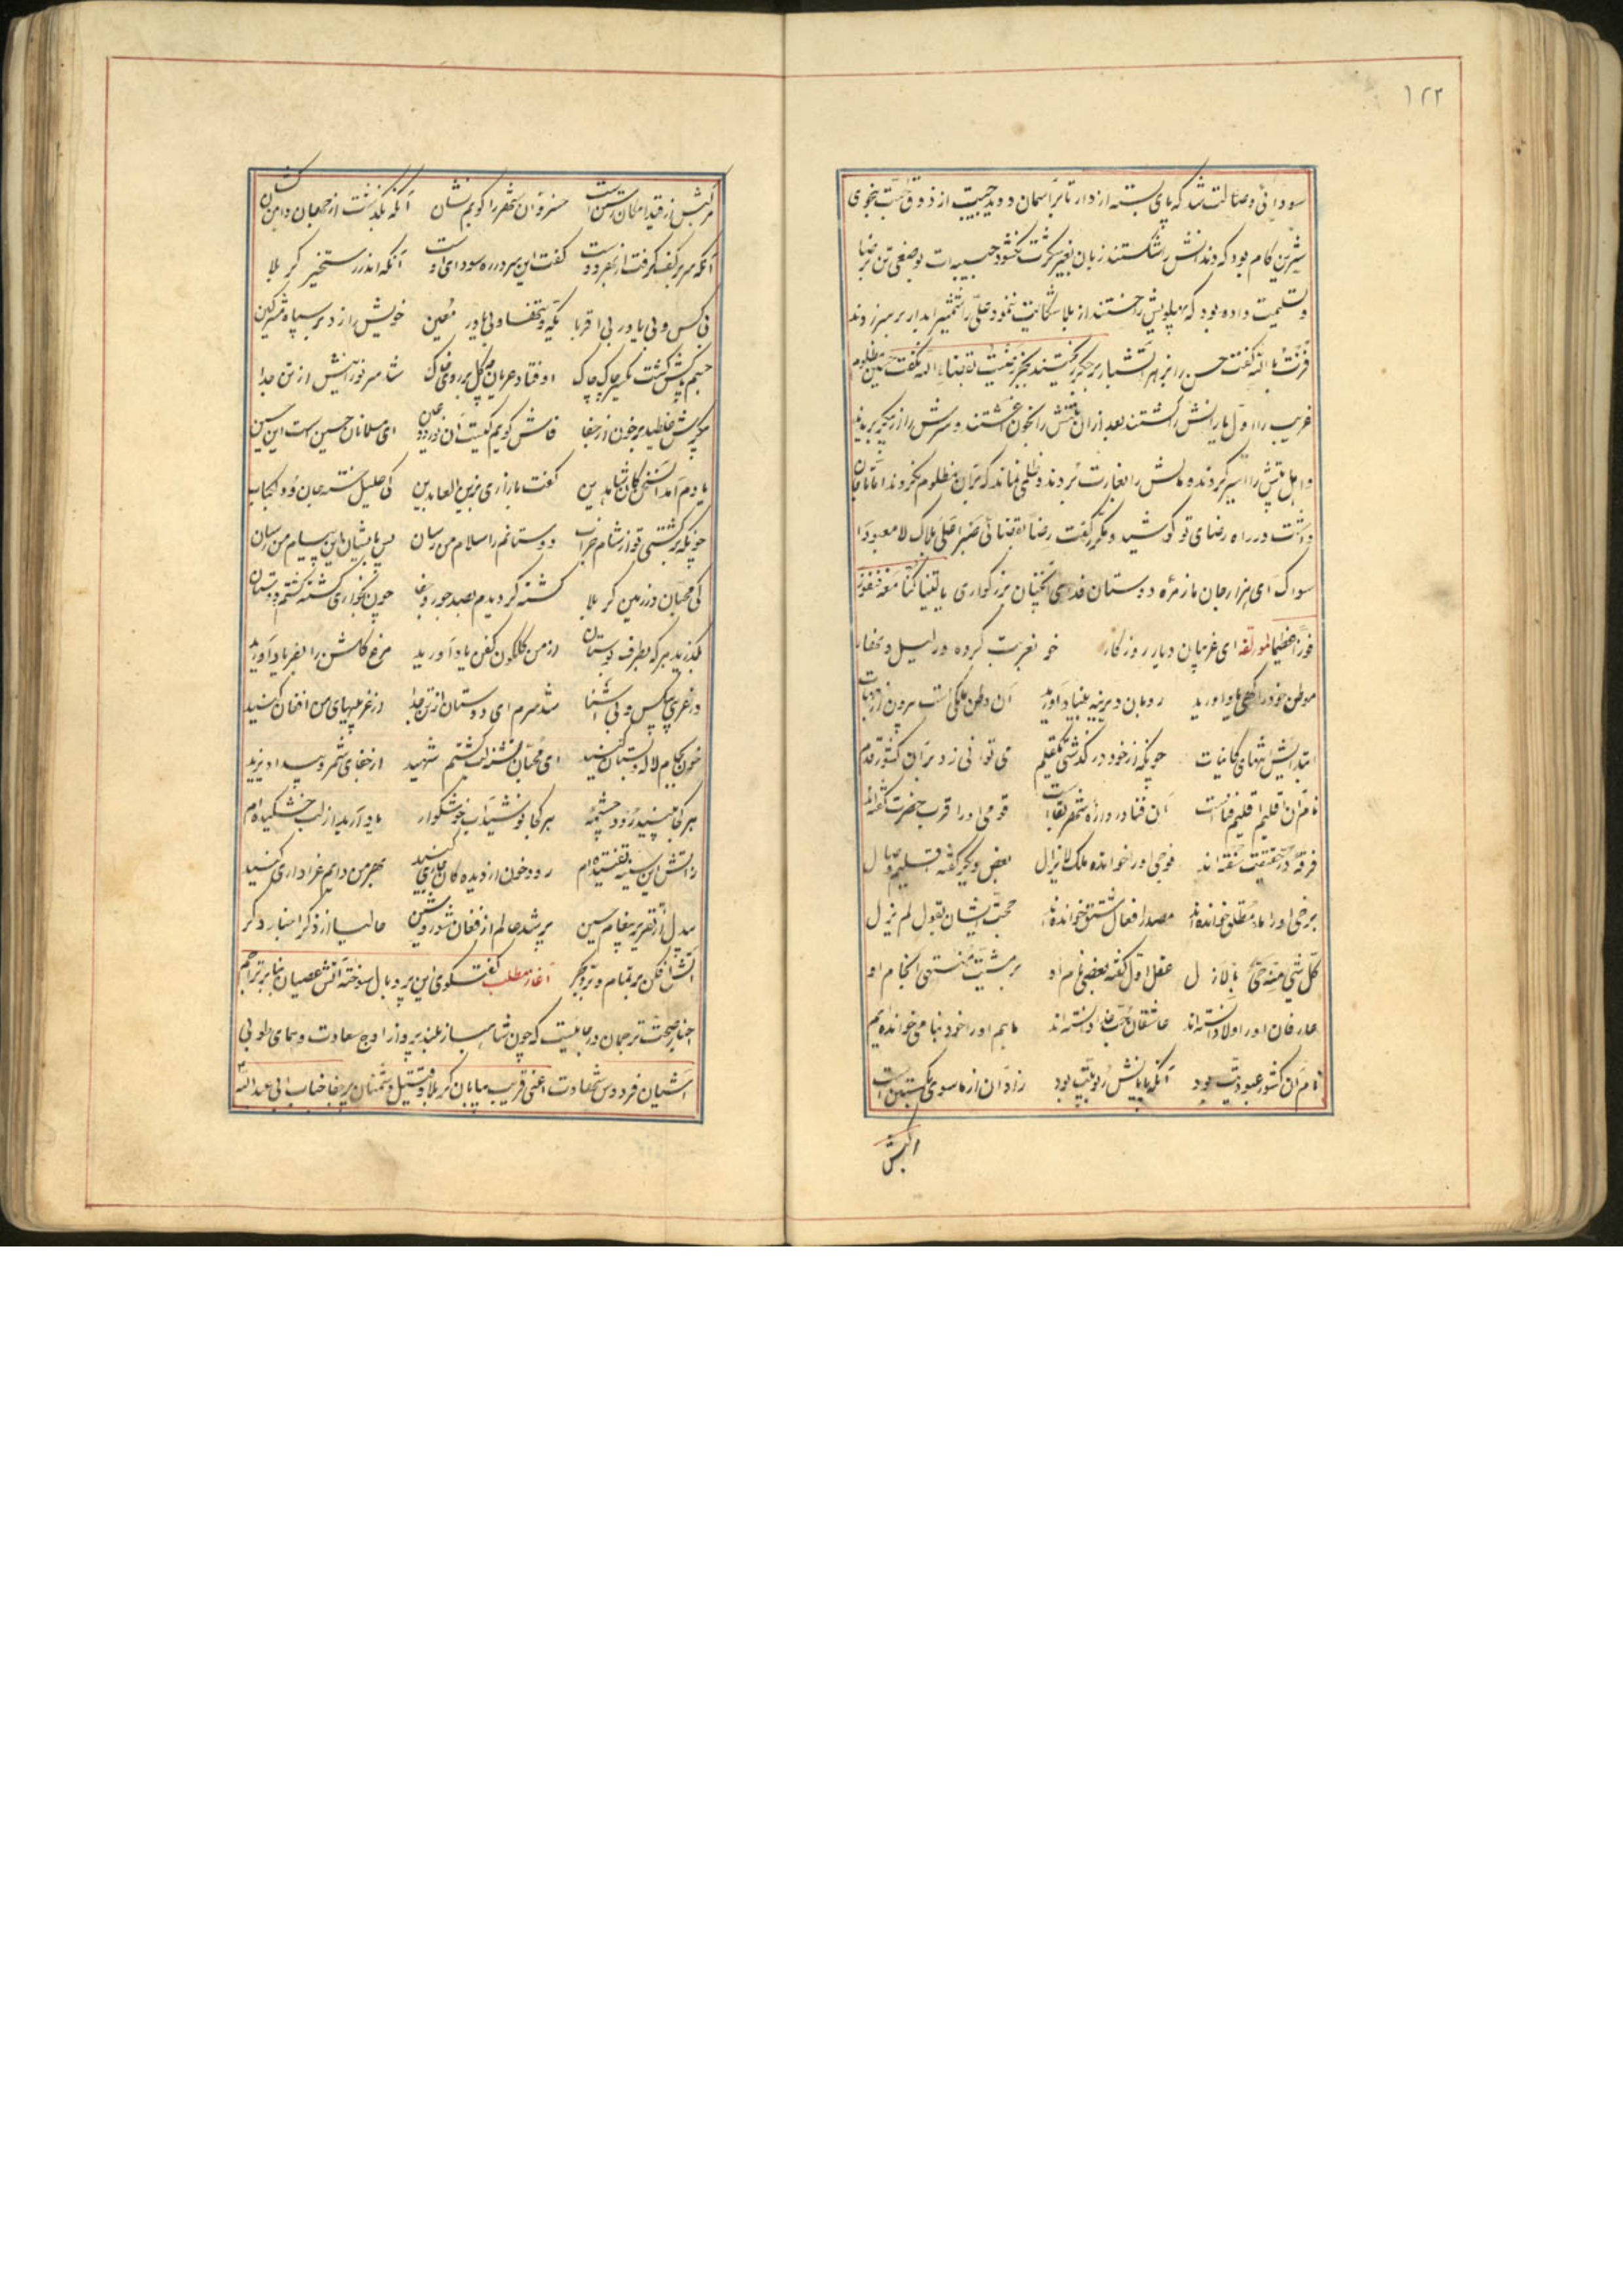 ۱۲۳
سودائی وصالت شد که پای بسته از دار تا بر آسمان دوید حبیبت از ذوق محبت بنحوی
شیرین کام بود که دندانش را شکستند زبان بغیر شکرت نگشود حبیبه‌ات بوضعی تن برضا
و تسلیمت داده بود که پهلویش را خستند از بلا شکایت ننمود علی را شمشیر آبدار بر سر زدند
فزت بالله گفت حسن را زهر آتشبار بر جگر ریختند بجز رضیت بقضاء الله نگفت حسین مظلوم
غریب را اول یارانش را کشتند بعد از آن تنش را بخون آغشتند و سرش را از پیکر بریدند
و اهل بیتش را اسیر کردند و مالش را بغارت بردند و ظلمی نماند که بر آن مظلوم نکردند اما تا جان
داشت در راه رضای تو کوشید و مکرر گفت رضا بقضائک صبرا علی بلائک لا معبود
سواک ای هزار جان ما زمره دوستان فدای آنچنان بزرگواری یا لیتنا کنا معه فنفوز
فوزا عظیما لمولفه ای غریبان دیار روزگار خو بغربت کرده در لیل و نهار
موطن خود را کهی یاد آورید رو بآن دیرینه بنیاد آورید آن وطن ملکی است بیرون از جهات
ابتدایش انتهای کاینات چونکه از خود در گذشتی یکقلم می توانی زد بر آن کشور قدم
نام آن اقلیم اقلیم فناست آن فنا دروازه شهر بقاست قومی او را قرب حضرت گفته‌اند
فرقه در حقیقت سفته‌اند فوجی او را خوانده ملک لایزال بعض دیگر گفته اقلیم وصال
برخی او را ماء مطلق خوانده‌اند مصدر افعال مشتق خوانده‌اند حجت ایشان بقول لم یزل
کل شیء منه حی بالازل عقل اول گفته بعضی نام او بر مشیت منتهی انجام او
عارفان او را ولا دانسته‌اند عاشقان حب خدا دانسته‌اند ما هم او را خود بنامی خوانده‌ایم
نام آن کشور عبودیت بود آنکه پایانش ربوبیت بود زاد آن از ما سوی بگسستن است
مرکبش از قید امکان رستن است خسرو آن شهر را گویم نشان آنکه بگذشت از جهان و از من
آنکه سر بر کف گرفت از بهر دوست گفت این سر در ره سودای اوست آنکه اندر رستخیز کربلا
بی کس و بی یاور بی اقربا یکه و تنها و بی یاور معین خویش را زد بر سپاه مشرکین
جسم پاکش گشت یکسر چاک چاک اوفتاد عریان پیکر بر روی خاک شد سر نورانیش از تن جدا
پیکرش غلطید بر خون از جفا فاش گویم کیست آن نور دو عین ای مسلمانان حسین است این حسین
یادم آمد این سخن کان شاه دین گفت با زاری بزین العابدین کی علیل تشنه جان و دل کباب
چونکه برگشتی تو از شام خراب دوستانم را سلام من رسان پس بایشان این پیام من رسان
کی محبان در زمین کربلا کشته گردیدم بصد جور و جفا چون بخواری کشته گشتم دوستان
بگذرید هر که بطرف بوستان از من گلگون کفن یاد آورید مرغ گلشن را بفریاد آورید
در غریبی بیکس و بی آشنا شد سرم ای دوستان از تن جدا در غریبیهای من افغان کنید
خون بکام لاله بستان کنید ای محبان تشنه لب گشتم شهید از جفای شمر و بیداد یزید
هر کجا بینید رود و چشمه هر کجا نوشید آب خوشگوار یاد آرید از لب خشکیده‌ام
ز آتش این سینه تفتیده‌ام رود خون از دیده‌گان جاری کنید بهر من دایم عزاداری کنید
بیدل از تقریر پیغام حسین پر شد عالم از فغان و شور و شین حالیا از ذکر اخبار دگر
آتش افکن بر تمام و بر و بحر آغاز مطلب گفتگوی این پر و بال سوخته آتش عصیان بنابر ترجم
اخبار صحت ترجمان در جائیست که چون شاهباز بلند پرواز اوج سعادت و همای طوبی
آشیان فردوس شهادت اعنی قریب بیابان کربلا و قتیل دشمنان پر جفا جناب ابی عبدالله